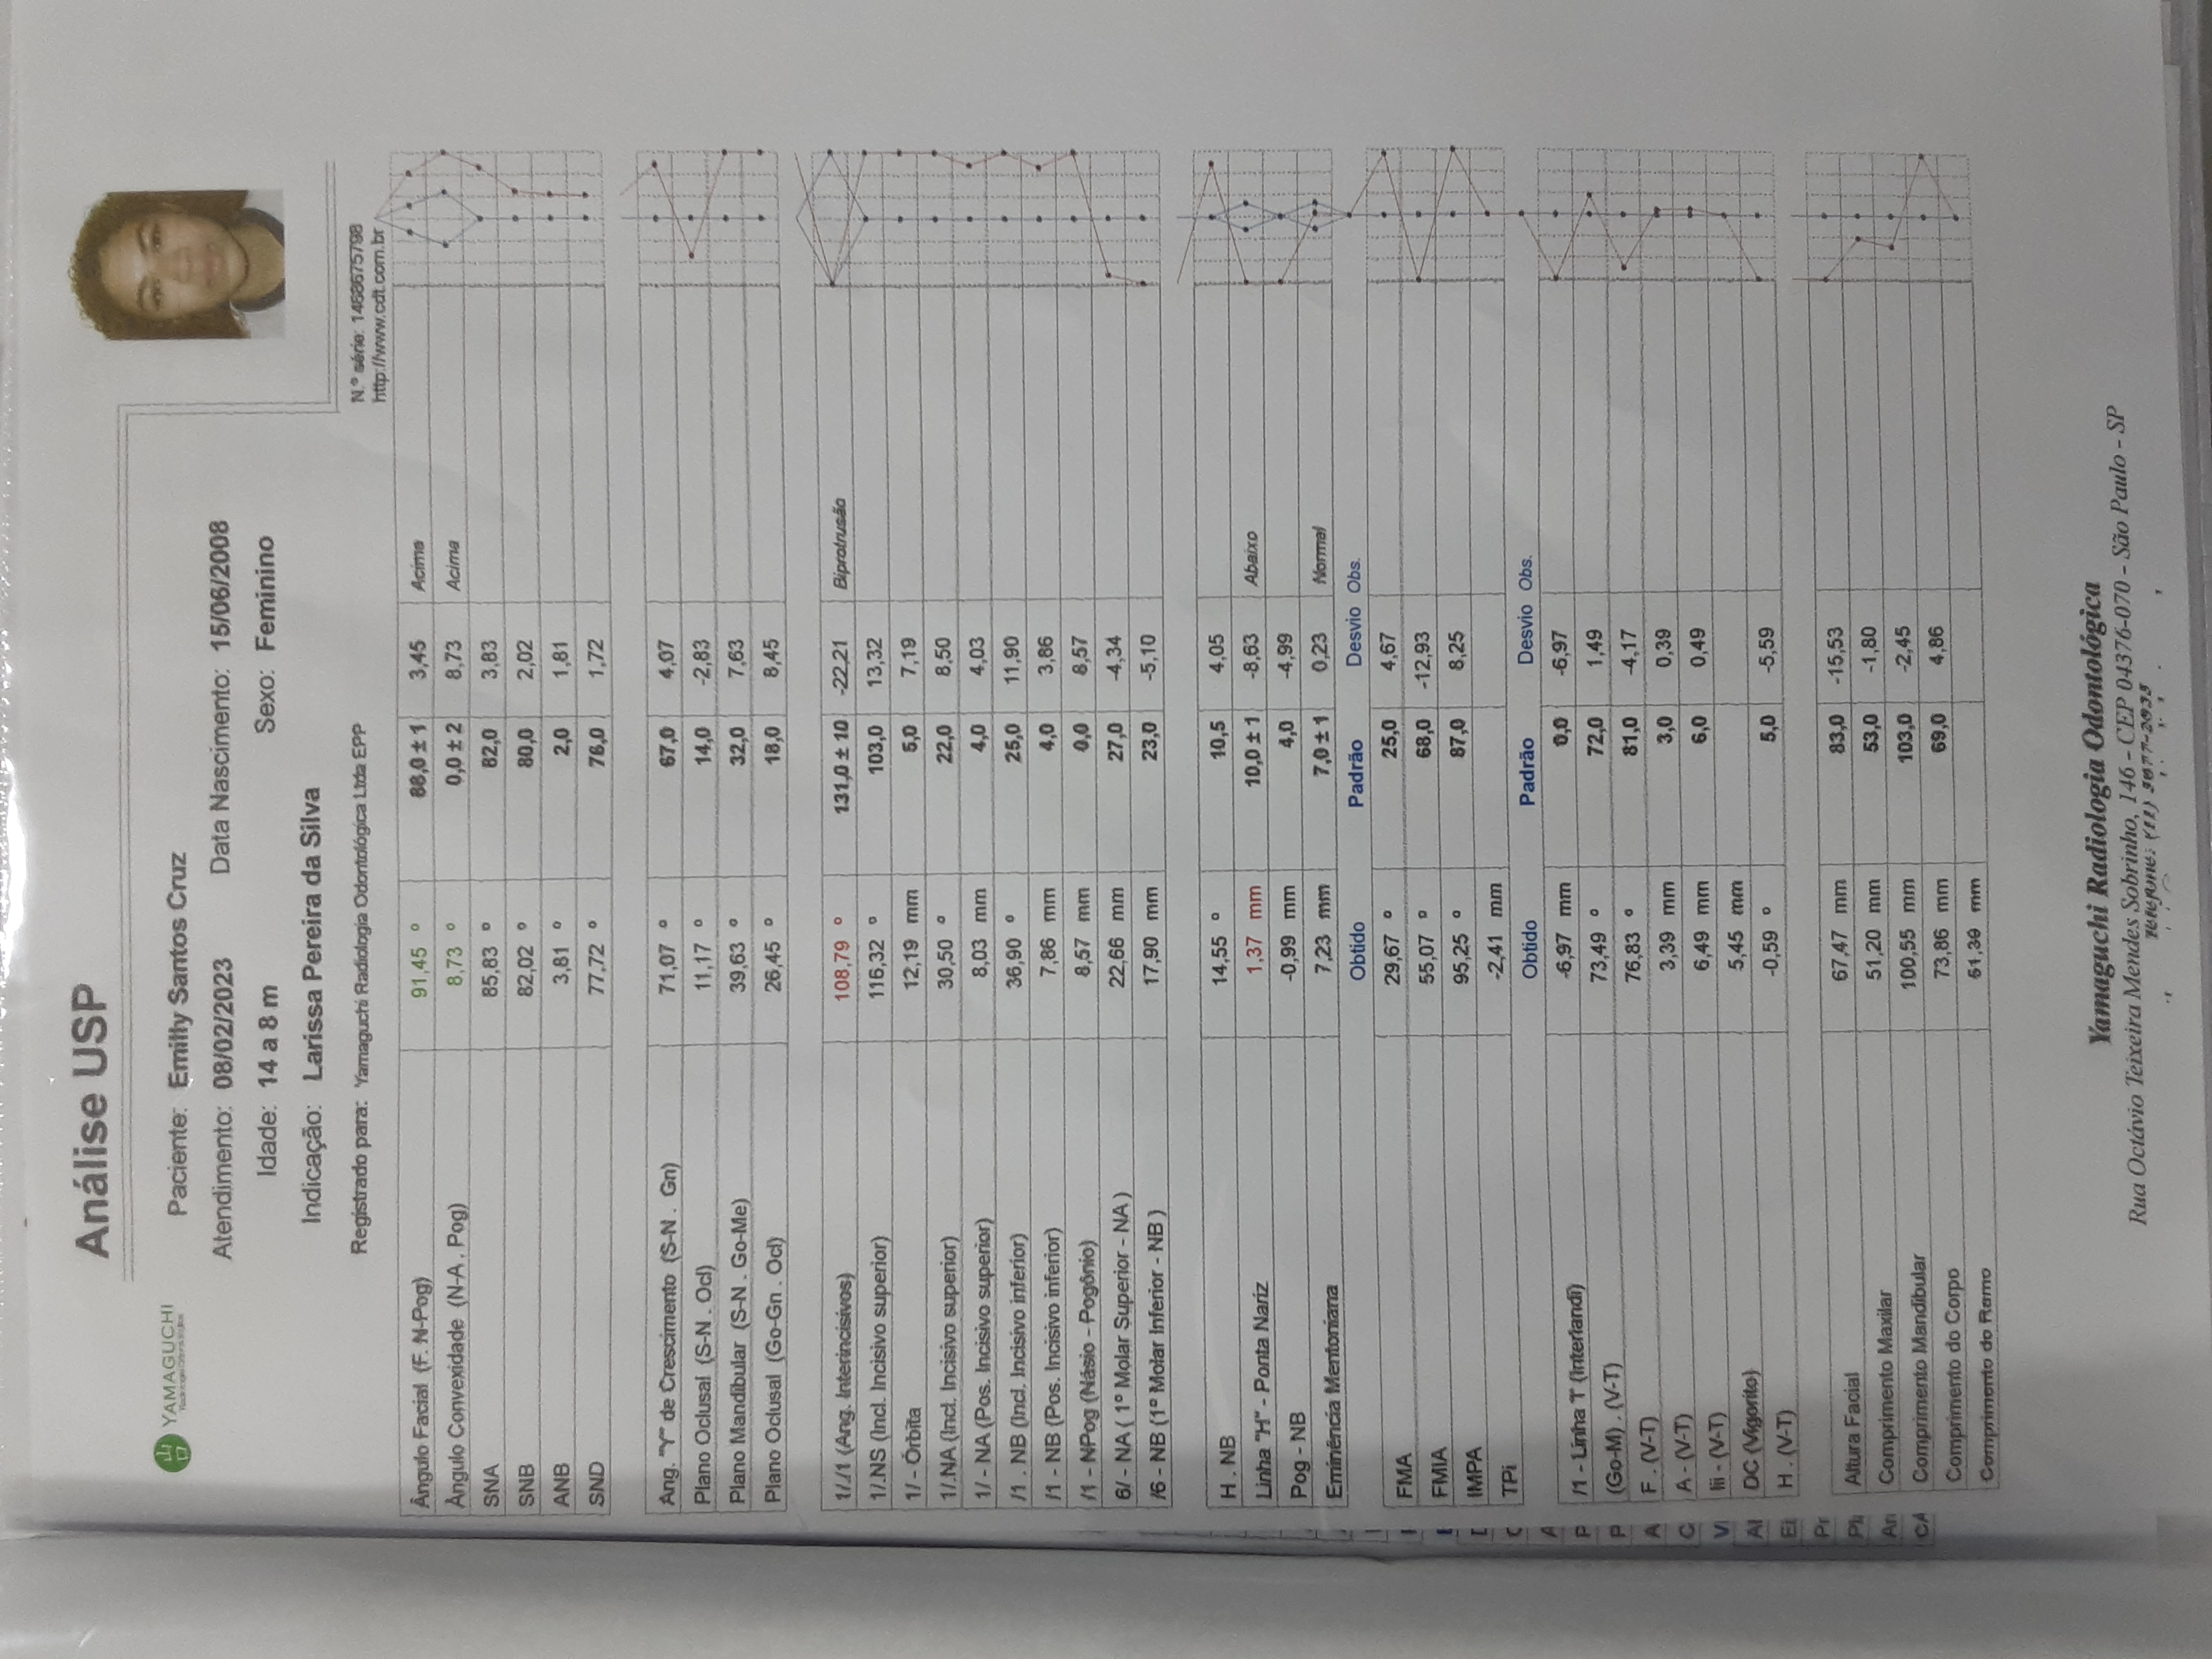 Análise USP
YAMAGUCHI
Paciente: Emilly Santos Cruz
Atendimento: 08/02/2023 Data Nascimento: 15/06/2008
Idade: 14 a 8 m Sexo: Feminino
Indicação: Larissa Pereira da Silva
N.º série: 1468675798
Registrado para: Yamaguchi Radiologia Odontológica Ltda EPP http://www.cdt.com.br
Ângulo Facial (F. N-Pog) 91,45 º 88,0 ± 1 3,45 Acima
Ângulo Convexidade (N-A . Pog) 8,73 º 0,0 ± 2 8,73 Acima
SNA 85,83 º 82,0 3,83
SNB 82,02 º 80,0 2,02
ANB 3,81 º 2,0 1,81
SND 77,72 º 76,0 1,72
Ang. "Y" de Crescimento (S-N . Gn) 71,07 º 67,0 4,07
Plano Oclusal (S-N . Ocl) 11,17 º 14,0 -2,83
Plano Mandibular (S-N . Go-Me) 39,63 º 32,0 7,63
Plano Oclusal (Go-Gn . Ocl) 26,45 º 18,0 8,45
1/./1 (Ang. Interincisivos) 108,79 º 131,0 ± 10 -22,21 Biprotrusão
1/.NS (Incl. Incisivo superior) 116,32 º 103,0 13,32
1/ - Órbita 12,19 mm 5,0 7,19
1/.NA (Incl. Incisivo superior) 30,50 º 22,0 8,50
1/ - NA (Pos. Incisivo superior) 8,03 mm 4,0 4,03
/1 . NB (Incl. Incisivo inferior) 36,90 º 25,0 11,90
/1 - NB (Pos. Incisivo inferior) 7,86 mm 4,0 3,86
/1 - NPog (Násio - Pogônio) 8,57 mm 0,0 8,57
6/ - NA ( 1º Molar Superior - NA) 22,66 mm 27,0 -4,34
/6 - NB (1º Molar Inferior - NB ) 17,90 mm 23,0 -5,10
H . NB 14,55 º 10,5 4,05
Linha "H" - Ponta Nariz 1,37 mm 10,0 ± 1 -8,63 Abaixo
Pog - NB -0,99 mm 4,0 -4,99
Eminência Mentoniana 7,23 mm 7,0 ± 1 0,23 Normal
Obtido Padrão Desvio Obs.
FMA 29,67 º 25,0 4,67
FMIA 55,07 º 68,0 -12,93
IMPA 95,25 º 87,0 8,25
TPi -2,41 mm
Obtido Padrão Desvio Obs.
/1 - Linha T (Interlandi) -6,97 mm 0,0 -6,97
(Go-M) . (V-T) 73,49 º 72,0 1,49
F . (V-T) 76,83 º 81,0 -4,17
A - (V-T) 3,39 mm 3,0 0,39
Iii - (V-T) 6,49 mm 6,0 0,49
DC (Vigorito) 5,45 mm
H . (V-T) -0,59 º 5,0 -5,59
Altura Facial 67,47 mm 83,0 -15,53
Comprimento Maxilar 51,20 mm 53,0 -1,80
Comprimento Mandibular 100,55 mm 103,0 -2,45
Comprimento do Corpo 73,86 mm 69,0 4,86
Comprimento do Ramo 61,39 mm
A
P
P
A
C
Vi
Al
Ei
Pr
Pl
An
CA
Yamaguchi Radiologia Odontológica
Rua Octávio Teixeira Mendes Sobrinho, 146 - CEP 04376-070 - São Paulo - SP